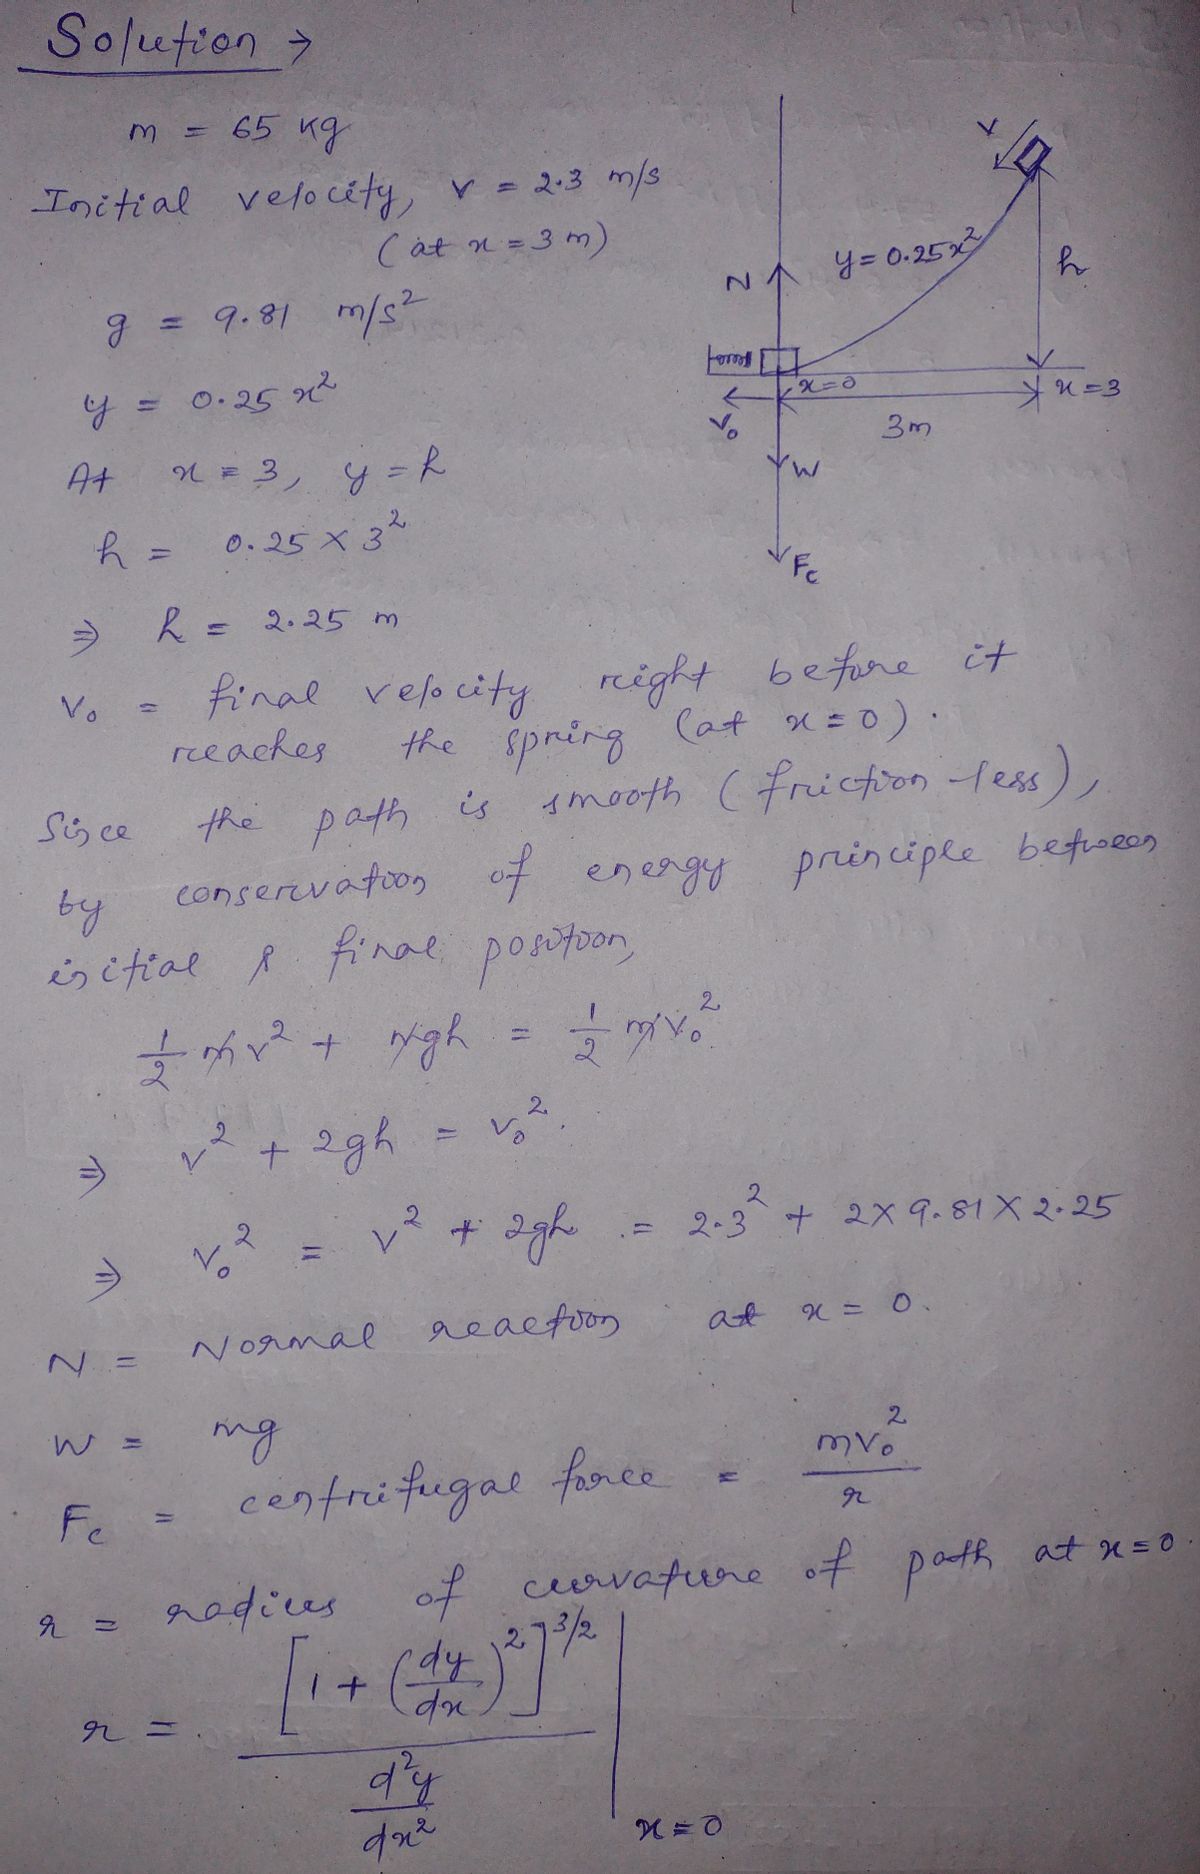 Solution →
m = 65 kg
Initial velocity, v = 2.3 m/s
(at x = 3 m)
g = 9.81 m/s²
y = 0.25 x²
At x = 3, y = h
h = 0.25 × 3²
⇒ h = 2.25 m
v
y = 0.25x²
h
N
x=0
x=3
V₀
3m
W
Fc
V₀ = final velocity right before it
reaches the spring (at x = 0).
Since the path is smooth (friction-less),
by conservation of energy principle between
initial & final position,
1/2 mv² + mgh = 1/2 mv₀²
⇒ v² + 2gh = v₀².
⇒ v₀² = v² + 2gh = 2.3² + 2×9.81×2.25
N = Normal reaction at x = 0.
W = mg
Fc = centrifugal force = mv₀²/r
r = radius of curvature of path at x=0.
r = [1 + (dy/dx)²]^3/2 / d²y/dx² | x=0